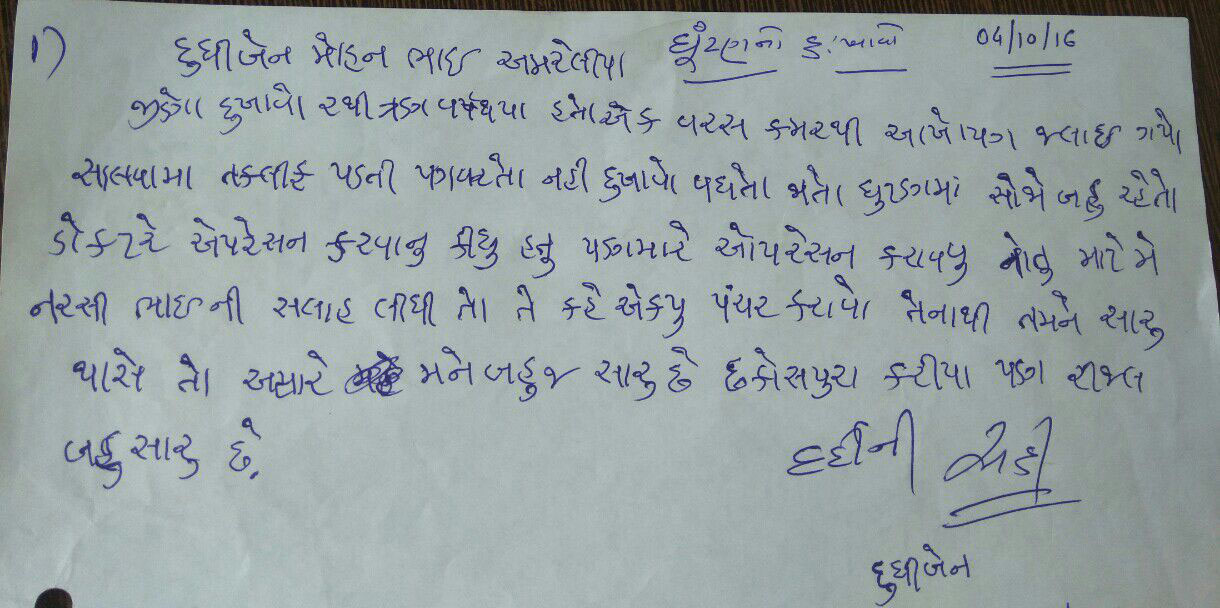 1) દુધીબેન મોહન ભાઇ અમરેલીયા ઘૂંટણનો દુઃખાવો 04/10/16
દુખાવો ત્રણ વર્ષથયા હતો એક વરસ કમરથી આખો પગ જલાઇ ગયો
સાલવામા તકલીફ પડતી પગવળતો નહી દુખાવો વધતો જતો ઘુટણમાં સોજો બહુ રહેતો
ડોકટરે ઓપરેસન કરવાનુ કીધુ હતુ પણમારે ઓપરેસન કરાવવુ નોતુ માટે મે
નરસી ભાઇ ની સલાહ લીધી તો તે કહે એકયુ પંચર કરાવો તેનાથી તમને સારુ
થાસે તો અત્યારે મને બહુજ સારુ છે છ કોસપુરા કરીયા પણ રીજલ
બહુ સારુ છે.
દર્દીની સહી
દુધીબેન